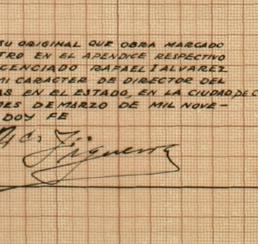 TU ORIGINAL QUE OBRA MARCADO
TRO EN EL APENDICE RESPECTIVO
CENCIADO RAFAEL I ALVAREZ
MI CARACTER DE DIRECTOR DEL
AS EN EL ESTADO, EN LA CIUDAD DE C
MES DE MARZO DE MIL NOVE-
DOY FE
Figueroa